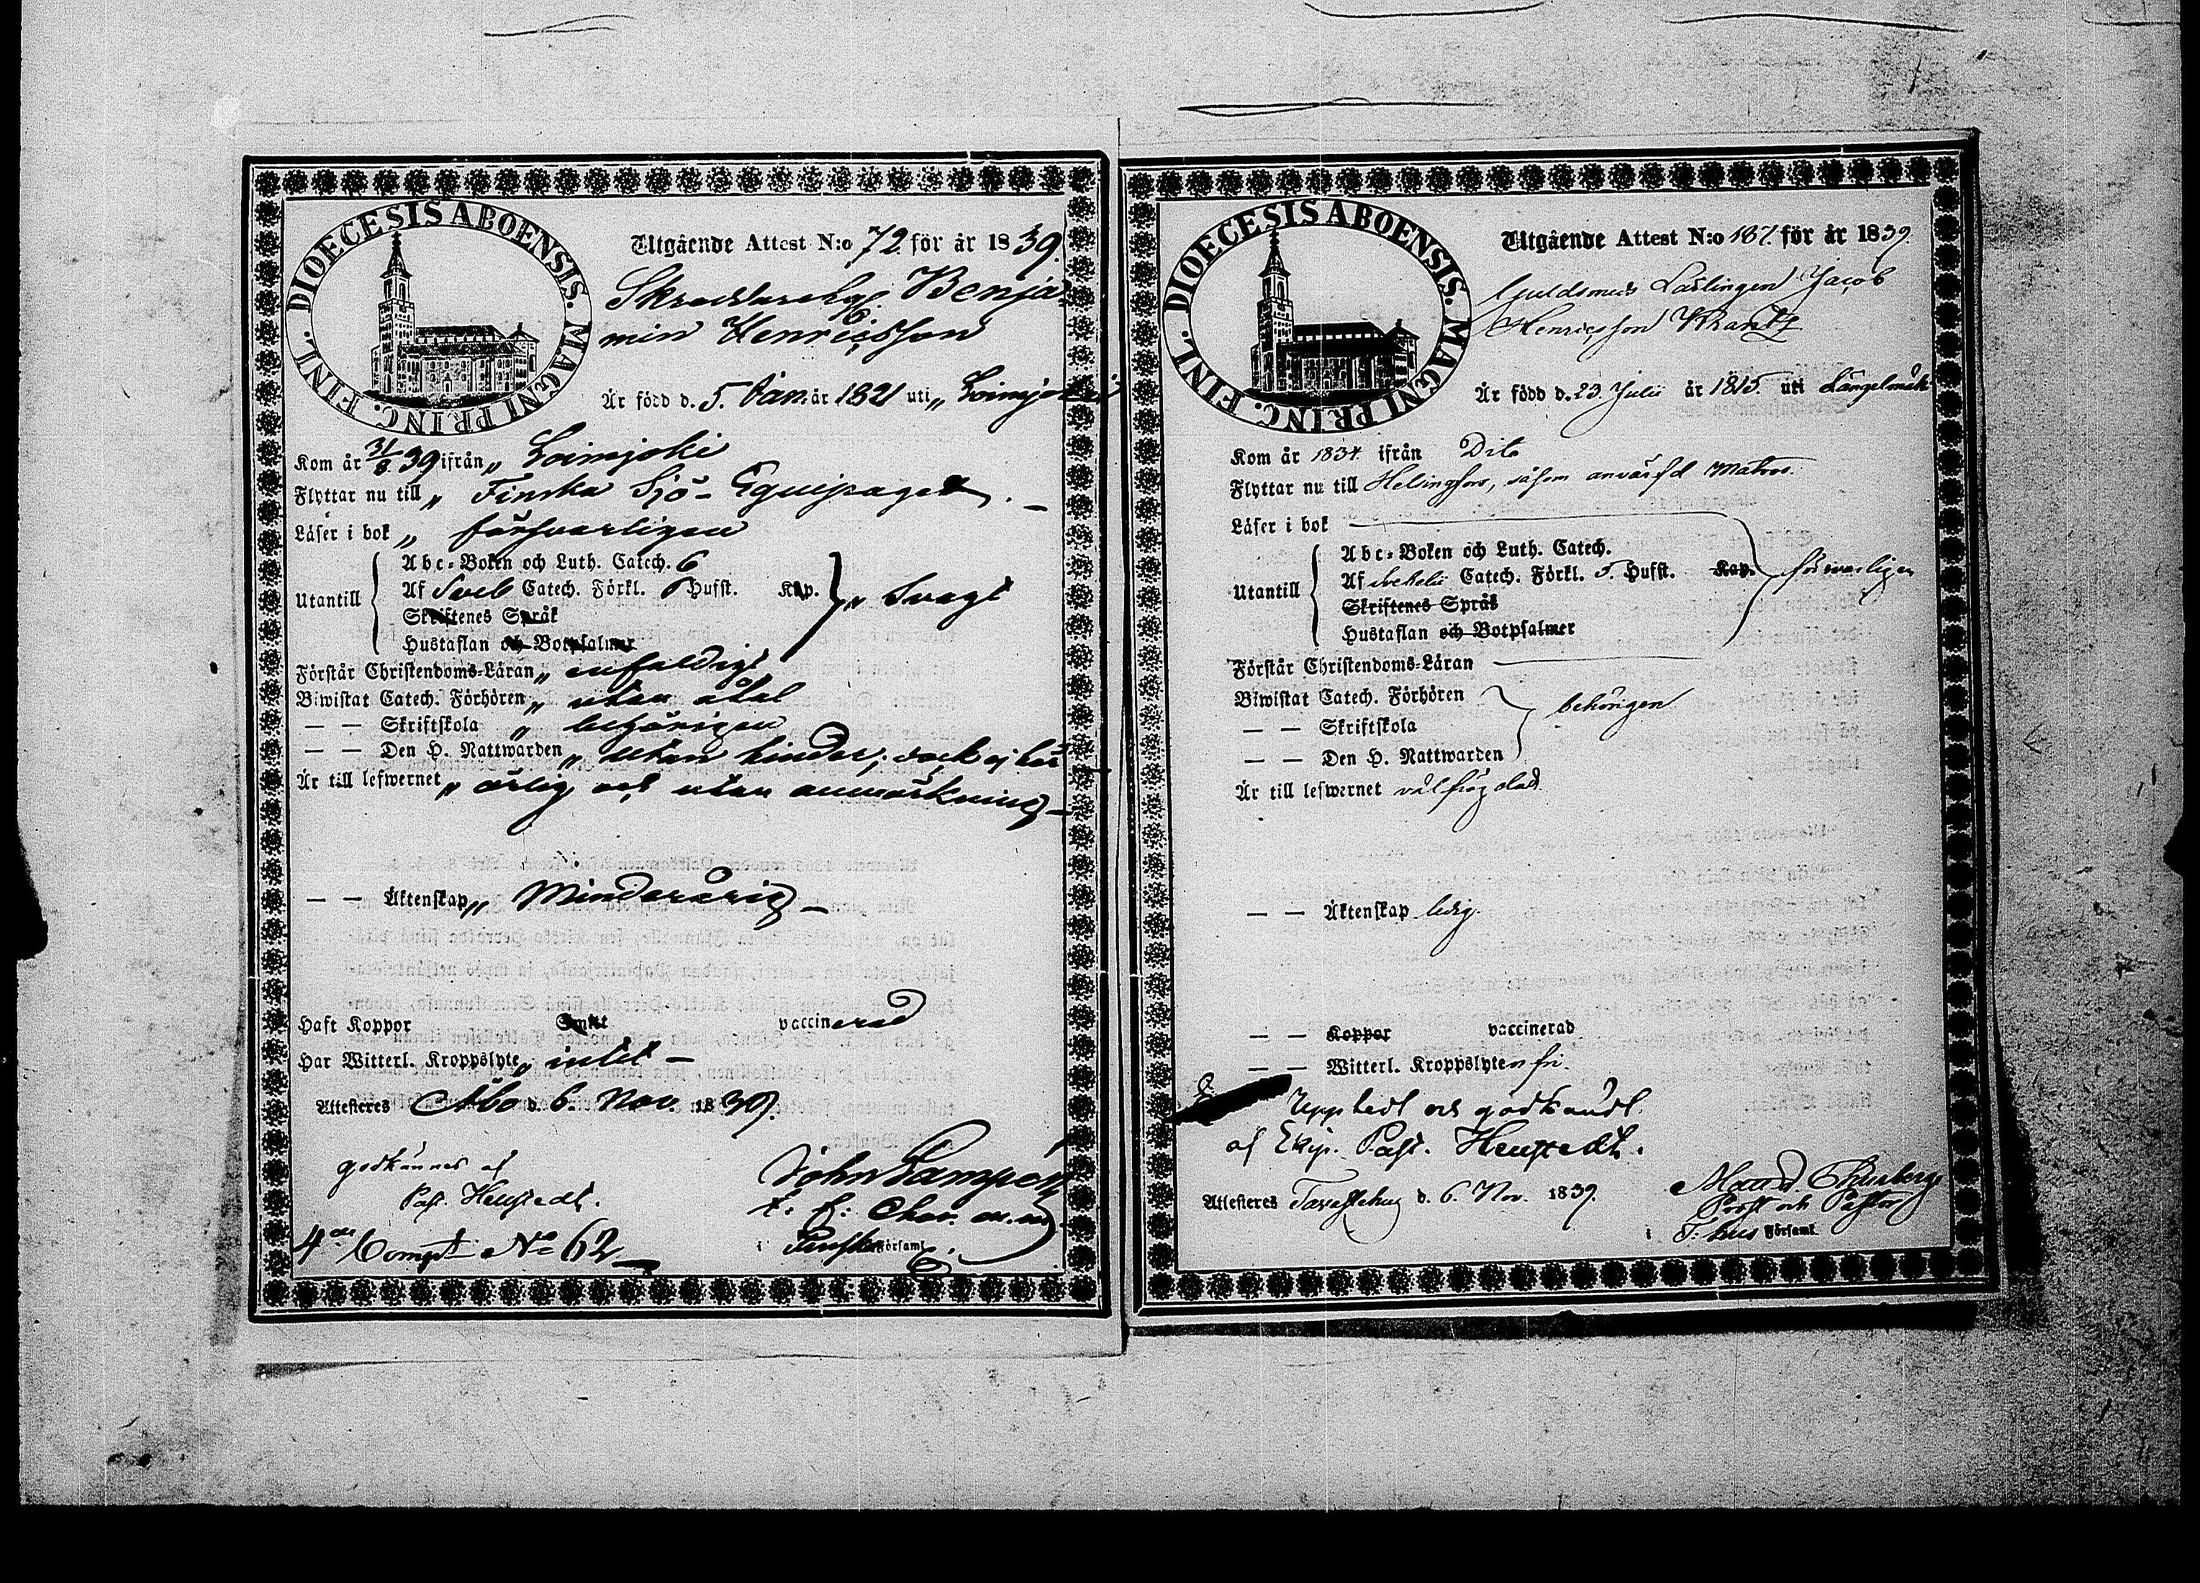 DIOECESIS ABOENSIS. MAGNI PRINC. FINL.
Utgående Attest N:o 72 för år 1839.
Benja-
min Henricsson
Är född d. 5. Jan. år 1821 uti „ Loimjoki
Kom år 31/8 39 ifrån „ Loimjoki
Flyttar nu till „ Finska Sjö-Equipaget.
Läser i bok „ försvarligen
Utantill
Abc-Boken och Luth. Catech. 6
Af Sveb Catech. Förkl. 6 Hufst. Kap. „ Svagt
Skriftenes Språk
Hustaflan och Botpsalmer
Förstår Christendoms-Läran „ enfaldigt
Biwistat Catech. Förhören „ utan åtal
— — Skriftskola „ behörigen
— — Den H. Nattwarden „ utan hinder, dock ej här
Är till lefwernet „ ärlig och utan anmärkning —
— — Äktenskap „ Minderårig —
Haft Koppor Smitt vaccinerad
Har Witterl. Kroppslyte „ intet —
Attesteres Åbo d. 6. Nov. 1839.
godkännes af
Past. Henstedt.
John Lampén
4de Comp. No 62
i Finska Församl.
DIOECESIS ABOENSIS. MAGNI PRINC. FINL.
Utgående Attest N:o 187. för år 1839.
Guldsmeds Lärlingen Jacob
Henricsson Krantz
Är född d. 23. Julii år 1815. uti Längelmäki
Kom år 1834 ifrån Dito
Flyttar nu till Helsingfors, såsom anvärfd Matros.
Läser i bok
Utantill
Abc-Boken och Luth. Catech.
Af Svebelii Catech. Förkl. 5. Hufst. Kap. försvarligen
Skriftenes Språk
Hustaflan och Botpsalmer
Förstår Christendoms-Läran
Biwistat Catech. Förhören
— — Skriftskola
behörigen
— — Den H. Nattwarden
Är till lefwernet välfrägdad.
— — Äktenskap ledig.
— — Koppor vaccinerad
— — Witterl. Kroppslyten fri.
Uppvist och godkändt
af Ekip. Past. Henstedt.
Attesteres Tavastehus d. 6. Nov. 1839.
Prost och Pastor
i T:hus Församl.